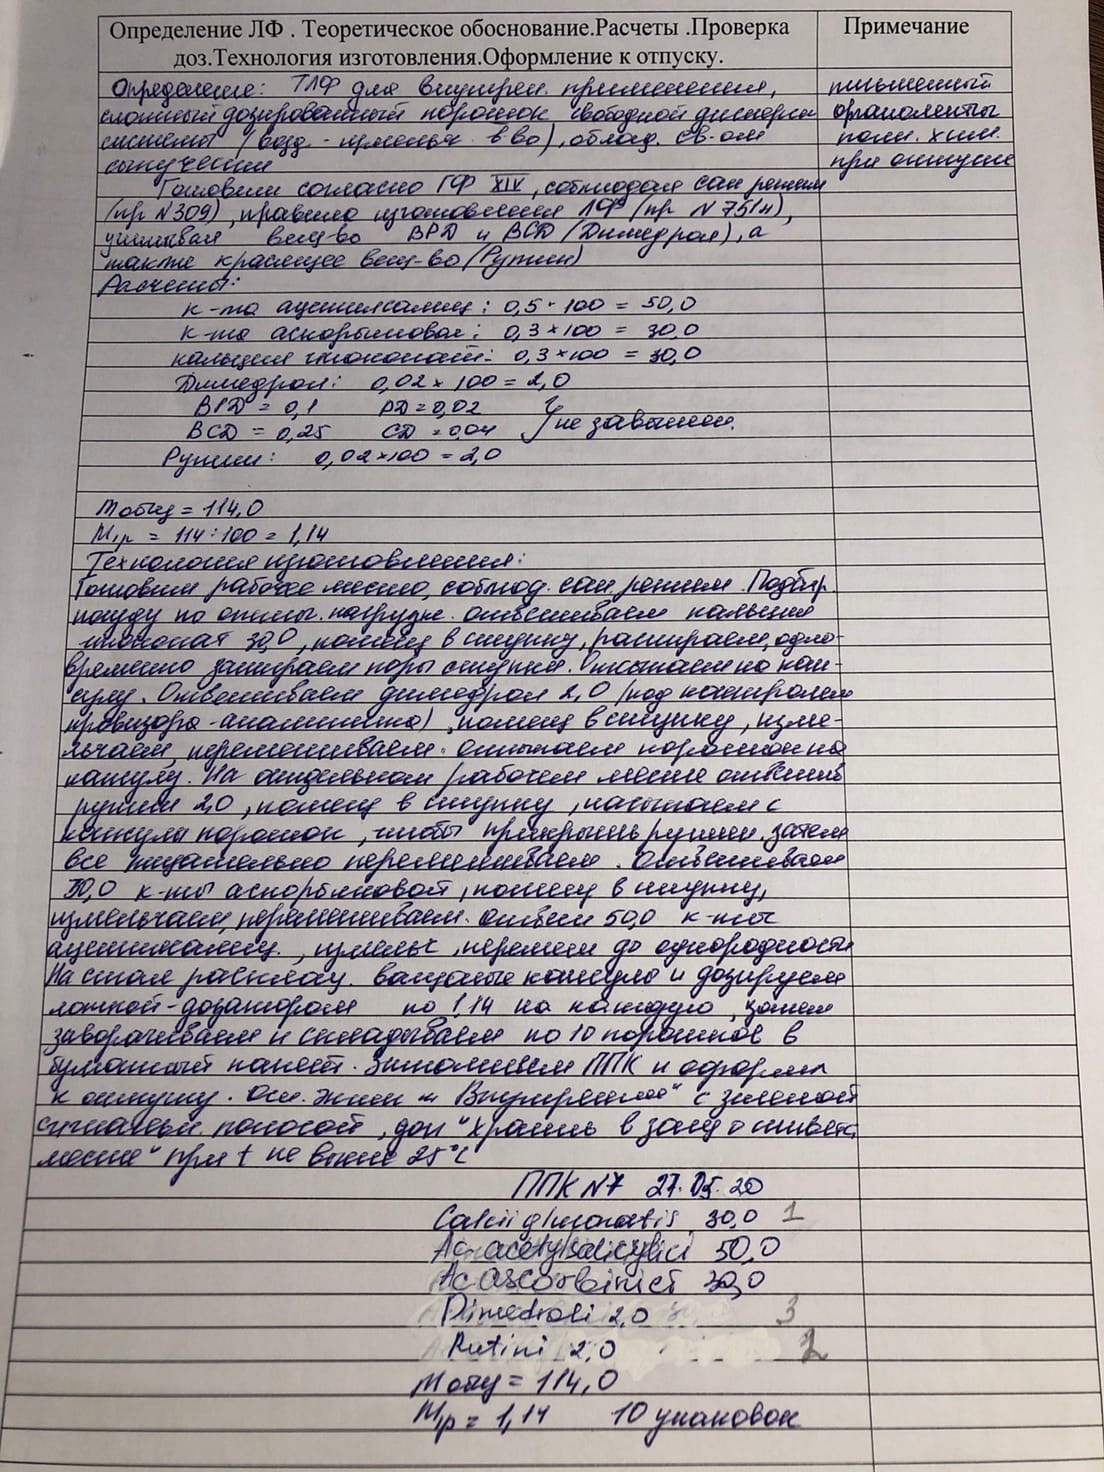 Определение ЛФ . Теоретическое обоснование.Расчеты .Проверка доз.Технология изготовления.Оформление к отпуску.
Примечание
Определение: ТЛФ для внутрен. применения,
сложный дозированный порошок свободной дисперсн
системы (возд - измельч. в-во), облад. св-ом
сыпучести
письменный
органолепты
полн. хим.
при отпуске
Готовим согласно ГФ XIV, соблюдая сан режим
(пр N309), правила изготовления ЛФ (пр N 751н),
учитывая вещ-во ВРД и ВСД (Димедрол), а
также красящее вещ-во (Рутин)
Расчеты:
к-та ацетилсалиц: 0,5 · 100 = 50,0
к-та аскорбиновая: 0,3 × 100 = 30,0
кальция глюконат: 0,3 × 100 = 30,0
Димедрол: 0,02 × 100 = 2,0
ВРД = 0,1 РД = 0,02
ВСД = 0,25 СД = 0,04 } не завышен.
Рутин: 0,02 × 100 = 2,0
Mобщ = 114,0
M1р = 114 : 100 = 1,14
Технология изготовления:
Готовим рабочее место, соблюд. сан режим. Подбир.
посуду по оптим. нагрузке. отвешиваем кальция
глюконат 30,0, помещ в ступку, растираем, одно-
временно затираем поры ступки. Отсыпаем на кап-
сулу. Отвешиваем димедрол 2,0 (под контролем
провизора-аналитика), помещ в ступку, изме-
льчаем, перемешиваем. отсыпаем порошок на
капсулу. На отдельном рабочем месте отвешив
рутин 2,0, помещ в ступку, насыпаем с
капсулы порошок, чтобы прикрыть рутин, затем
все тщательно перемешиваем. Отвешиваем
30,0 к-ты аскорбиновой, помещ в ступку,
измельчаем, перемешиваем. отвеш 50,0 к-ты
ацетилсалиц., измельч, перемеш до однородности
На стол расклад. вощаные капсулы и дозируем
ложкой-дозатором по 1,14 на каждую, затем
заворачиваем и складываем по 10 порошков в
бумажный пакет. Заполняем ППК и оформл
к отпуску. Осн. этик - "Внутреннее" с зеленой
сигнальн. полосой, доп "хранить в защ от света
месте" при t не выше 25°C
ППК N7 27.05.20
Calcii gluconatis 30,0 1
Ac. acetylsalicylici 50,0
Ac ascorbinici 30,0
Dimedroli 2,0 3
Rutini 2,0 2
Mобщ = 114,0
M1р = 1,14 10 упаковок